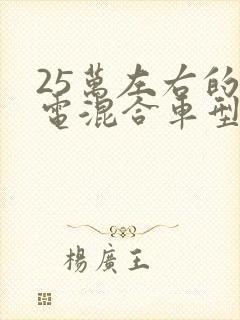 25萬左右的
電混合車型
楊廣王